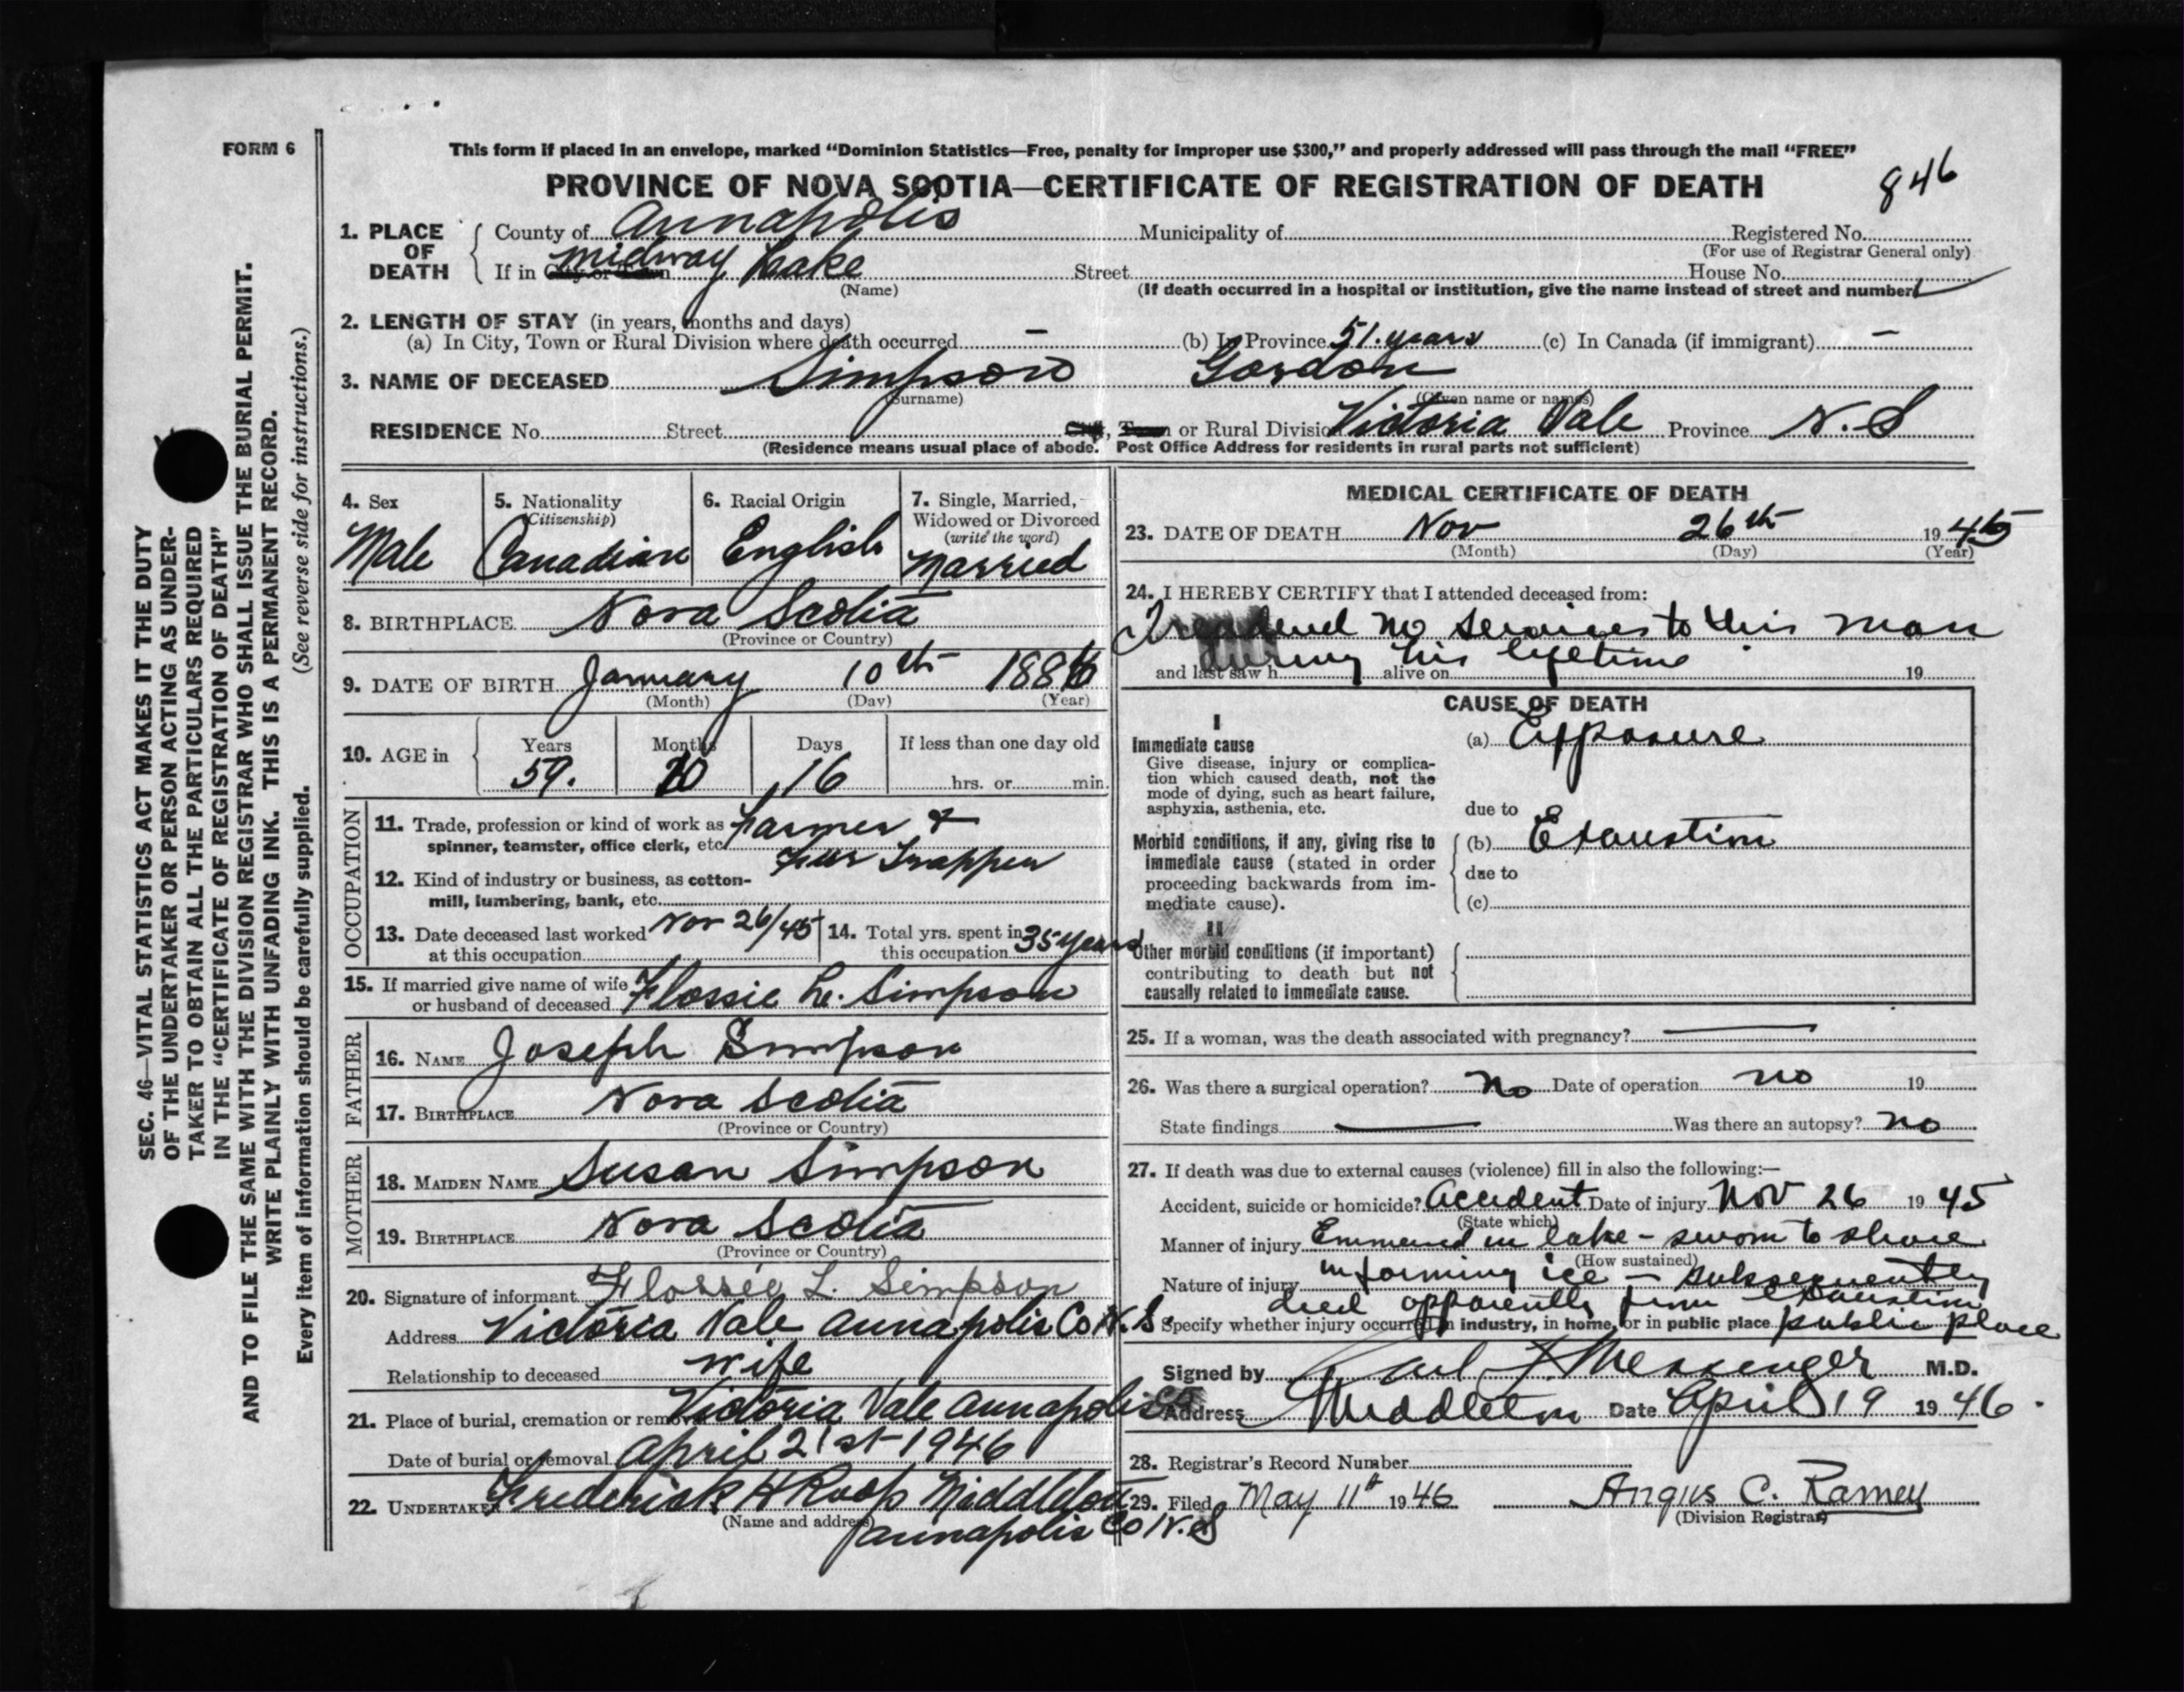 FORM 6
This form if placed in an envelope, marked “Dominion Statistics—Free, penalty for improper use $300,” and properly addressed will pass through the mail “FREE”
PROVINCE OF NOVA SCOTIA—CERTIFICATE OF REGISTRATION OF DEATH
846
1. PLACE OF DEATH
County of Annapolis Municipality of Registered No.
(For use of Registrar General only)
If in City or Town Midway Lake Street House No.
(Name) (If death occurred in a hospital or institution, give the name instead of street and number)
2. LENGTH OF STAY (in years, months and days)
(a) In City, Town or Rural Division where death occurred — (b) In Province 51 years (c) In Canada (if immigrant) —
3. NAME OF DECEASED Simpson Gordon
(Surname) (Given name or names)
RESIDENCE No. Street City, Town or Rural Division Victoria Vale Province N.S
(Residence means usual place of abode. Post Office Address for residents in rural parts not sufficient)
4. Sex
Male
5. Nationality
(Citizenship)
Canadian
6. Racial Origin
English
7. Single, Married,
Widowed or Divorced
(write the word)
Married
8. BIRTHPLACE Nova Scotia
(Province or Country)
9. DATE OF BIRTH January 10th 1886
(Month) (Day) (Year)
10. AGE in
Years Months Days If less than one day old
59. 10 16 hrs. or min.
OCCUPATION
11. Trade, profession or kind of work as Farmer &
spinner, teamster, office clerk, etc. Fur Trapper
12. Kind of industry or business, as cotton-
mill, lumbering, bank, etc.
13. Date deceased last worked Nov 26/45
at this occupation
14. Total yrs. spent in
this occupation 35 years
15. If married give name of wife
or husband of deceased Flossie L. Simpson
FATHER
16. NAME Joseph Simpson
17. BIRTHPLACE Nova Scotia
(Province or Country)
MOTHER
18. MAIDEN NAME Susan Simpson
19. BIRTHPLACE Nova Scotia
(Province or Country)
20. Signature of informant Flossie L. Simpson
Address Victoria Vale Annapolis Co N.S.
Relationship to deceased wife
21. Place of burial, cremation or removal Victoria Vale Annapolis Co
Date of burial or removal April 21st 1946
22. UNDERTAKER Frederick H Roop Middleton
(Name and address) Annapolis Co N.S
MEDICAL CERTIFICATE OF DEATH
23. DATE OF DEATH Nov 26th 1945
(Month) (Day) (Year)
24. I HEREBY CERTIFY that I attended deceased from:
no services to this man
during his lifetime
and last saw h alive on 19
CAUSE OF DEATH
I
Immediate cause
Give disease, injury or complica-
tion which caused death, not the
mode of dying, such as heart failure,
asphyxia, asthenia, etc.
(a) Exposure
due to
Morbid conditions, if any, giving rise to
immediate cause (stated in order
proceeding backwards from im-
mediate cause).
(b) Exaustion
due to
(c)
II
Other morbid conditions (if important)
contributing to death but not
causally related to immediate cause.
25. If a woman, was the death associated with pregnancy? —
26. Was there a surgical operation? no Date of operation no 19
State findings — Was there an autopsy? no
27. If death was due to external causes (violence) fill in also the following:—
Accident, suicide or homicide? Accident Date of injury Nov 26 1945
(State which)
Manner of injury in lake – swom to shore
(How sustained)
Nature of injury in forming ice – subsequently
died apparently from exaustion
Specify whether injury occurred in industry, in home, or in public place public place
Signed by Messenger M.D.
Address Middleton Date April 19 1946.
28. Registrar's Record Number
29. Filed May 11th 1946 Angus C. Ramey
(Division Registrar)
SEC. 46—VITAL STATISTICS ACT MAKES IT THE DUTY
OF THE UNDERTAKER OR PERSON ACTING AS UNDER-
TAKER TO OBTAIN ALL THE PARTICULARS REQUIRED
IN THE “CERTIFICATE OF REGISTRATION OF DEATH”
AND TO FILE THE SAME WITH THE DIVISION REGISTRAR WHO SHALL ISSUE THE BURIAL PERMIT.
WRITE PLAINLY WITH UNFADING INK. THIS IS A PERMANENT RECORD.
Every item of information should be carefully supplied. (See reverse side for instructions.)